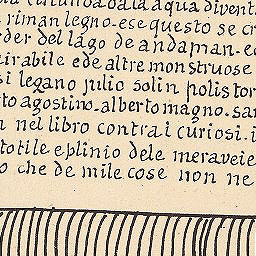 circundada dala aqua divent
riman legno-ece questo se cr
der del lago de andaman-ec
irabile ede altre monstruose
si legano julio solin polistor
to agostino. alberto magno. san
n nel libro contra i curiosi. i
totile eplinio dele meraveie
o che de mile cose non ne